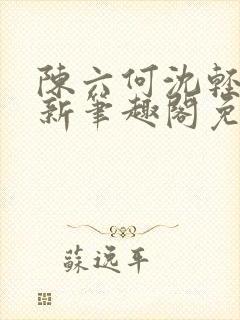 陳六何沈輕
新筆趣閣免
蘇逸平